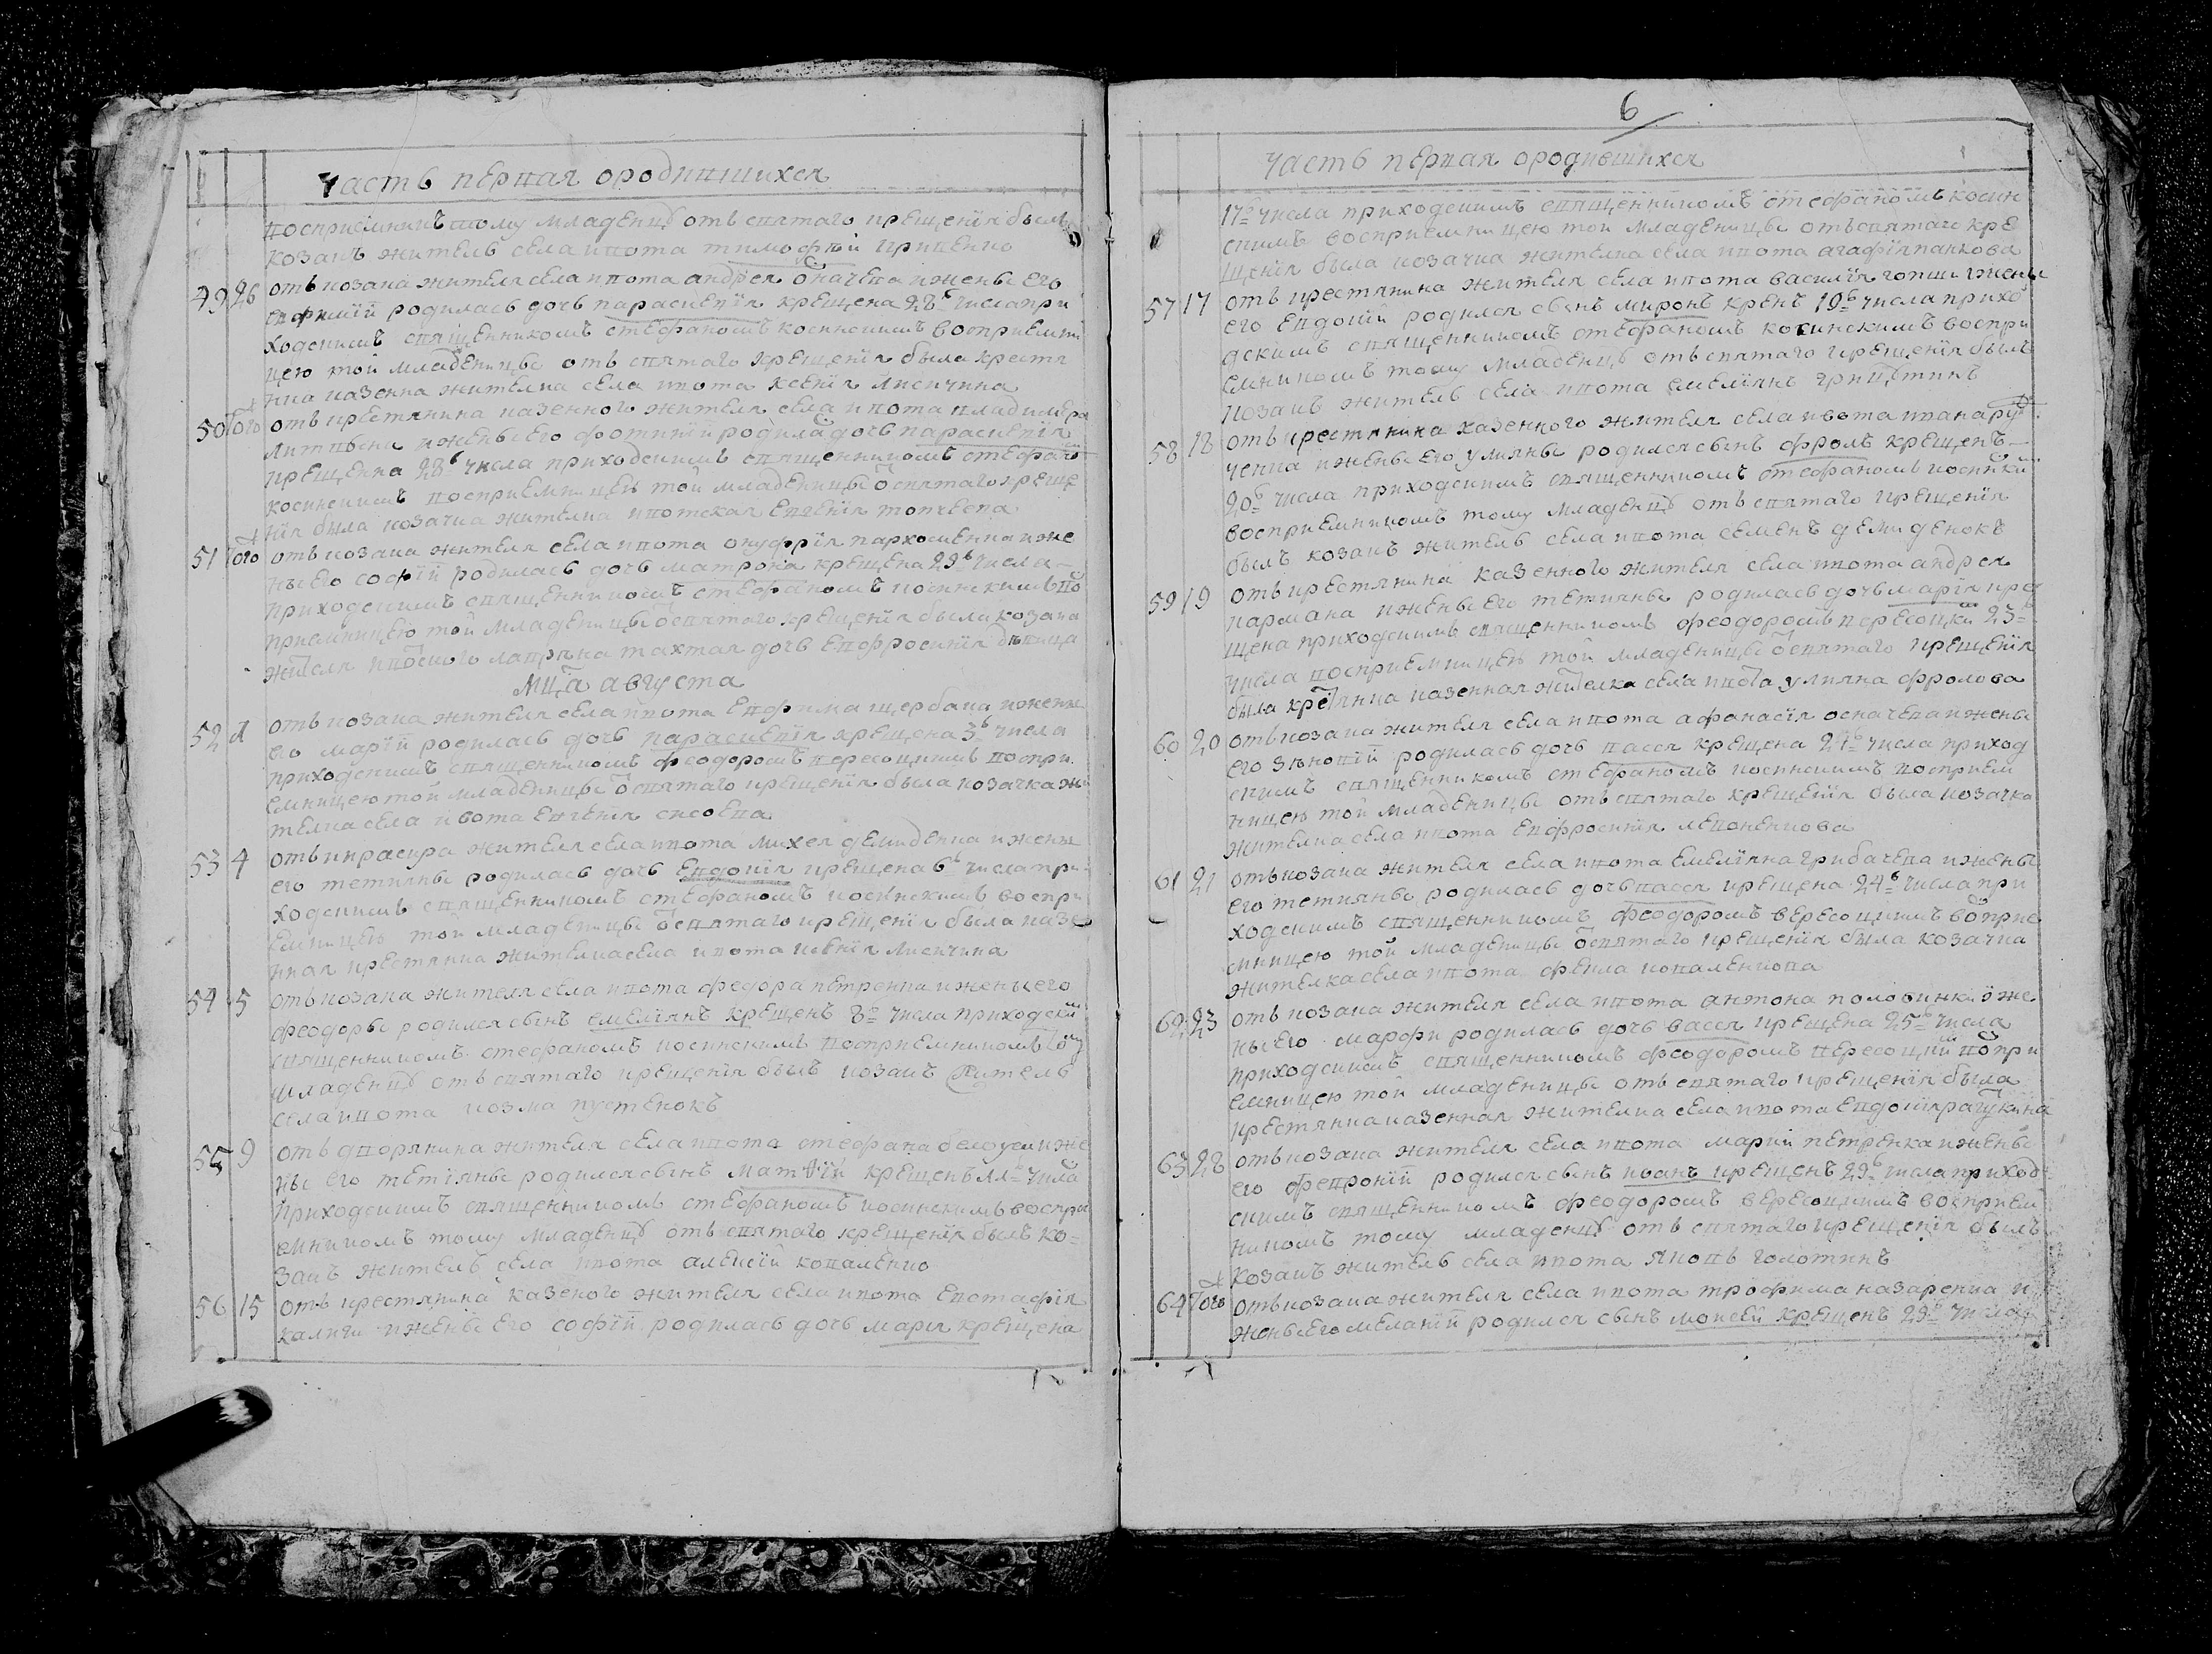 часть первая ородившихся
восприемникъ тому младенцѣ отъ святаго крещенїя былъ
козакъ житель села ивота тимофѣй гриценко
49 26 отъ козака жителя села ивота андрея осначева ижены его
евфимїй родилась дочь параскевїя крещена 28 числа при
ходскимъ священникомъ стефаномъ косинскимъ восприемни
цею той младеницы отъ святаго крещенїя была крестя
нка казенна жителка села ивота ксенїя лисичкина
50 Того отъ крестянина казенного жителя села ивота владимера
ижены его фотинїй родила дочь параскевїя
крещенна 28 числа приходскимъ священникомъ стефано
косинскимъ восприемницею той младеницы ѿ святаго креще
нїя была козачка жителка ивотская евгенїя
51 Того отъ козака жителя села ивота онуфрїя пархоменка иже
ны его софїй родилась дочь матрона крещена 29 числа
приходскимъ священникомъ стефаномъ косинскимъ вос
приемницею той младеницы ѿ святаго крещенїя была козака
жителя ивотского тахтая дочь евфросинїя дѣвица
Мца августа
52 1 отъ козака жителя села ивота евфима щербака ижены
его марїй родилась дочь параскевїя крещена 3 числа
приходскимъ священникомъ феодоромъ вересоцкимъ воспри
емницею той младеницы ѿ святаго крещенїя была козачка жи
телка села ивота евгенїя сисоева
53 4 отъ жителя села ивота михея демиденка ижены
его тетияны родилась дочь евдокїя крещена 6 числа при
ходскимъ священникомъ стефаномъ косинскимъ воспри
емницею той младеницы ѿ святаго крещенїя была казе
нная крестянка жителка села ивота ксенїя лисичкина
54 5 отъ козака жителя села ивота федора петренка ижены его
феодоры родился сынъ емелїянъ крещенъ 8 числа приходски
священникомъ стефаномъ косинскимъ восприемникомъ тому
младенцѣ отъ святаго крещенїя былъ козакъ житель
села ивота козма пустенокъ
55 9 отъ дворянина жителя села ивота стефана белоуси иже
ны его тетїяны родился сынъ матѳїй крещенъ 11 числа
приходскимъ священникомъ стефаномъ косинскимъ воспри
емникомъ тому младенцѣ отъ святаго крещенїя былъ ко
закъ житель села ивота алексїй коваленко
56 15 отъ крестянина казеного жителя села ивота евстафїя
калиги ижены его софїй родилась дочь марїя крещена
6
часть первая ородившихся
17 числа приходскимъ священникомъ стефаномъ косин
скимъ восприемницею той младеницы отъ святаго кре
щенїя была козачка жителка села ивота агафїя панкова
57 17 отъ крестянина жителя села ивота василїя ижены
его евдокїй родился сынъ миронъ крщенъ 19 числа прихо
дскимъ священникомъ стефаномъ косинскимъ воспри
емникомъ тому младенцѣ отъ святаго крещенїя былъ
козакъ житель села ивота емелїянъ
58 18 отъ крестянина казенного жителя села ивота ивана ру
ченка ижены его улияны родился сынъ фролъ крещенъ
20 числа приходскимъ священникомъ стефаномъ косински
восприемникомъ тому младенцѣ отъ святаго крещенїя
былъ козакъ житель села ивота семенъ демиденокъ
59 19 отъ крестянина казенного жителя села ивота андрея
кармана ижены его тетияны родилась дочь марїя кре
щена приходскимъ священникомъ феодоромъ вересоцки 23
числа восприемницею той младеницы ѿ святаго крещенїя
была крестянка казенная жителка села ивота улияна фролова
60 20 отъ козака жителя села ивота афанасїя осначева ижены
его зѣновїй родилась дочь васся крещена 24 числа приход
скимъ священникомъ стефаномъ косинскимъ восприем
ницею той младеницы отъ святаго крещенїя была козачка
жителка села ивота евфросинїя
61 21 отъ козака жителя села ивота емелїяна грибачева ижены
его тетияны родилась дочь васся крещена 24 числа при
ходскимъ священникомъ феодоромъ вересоцкимъ воспрїе
мницею той младеницы ѿ святаго крещенїя была козачка
жителка села ивота фекла коваленкова
62 23 отъ козака жителя села ивота антона половинки иже
ны его марфи родилась дочь васся крещена 25 числа
приходскимъ священникомъ феодоромъ вересоцкй воспри
емницею той младеницы отъ святаго крещенїя была
крестянка казенная жителка села ивота евдокїя
63 28 отъ козака жителя села ивота марий петренка ижены
его февронїй родился сынъ иванъ крещенъ 29 числа приход
скимъ священникомъ феодоромъ вересоцкимъ восприем
никомъ тому младенцѣ отъ святаго крещенїя былъ
козакъ житель села ивота яковъ голотинъ
64 Того отъ козака жителя села ивота трофима назаренка и
жены его меланїй родился сынъ моисей крещенъ 29 числа